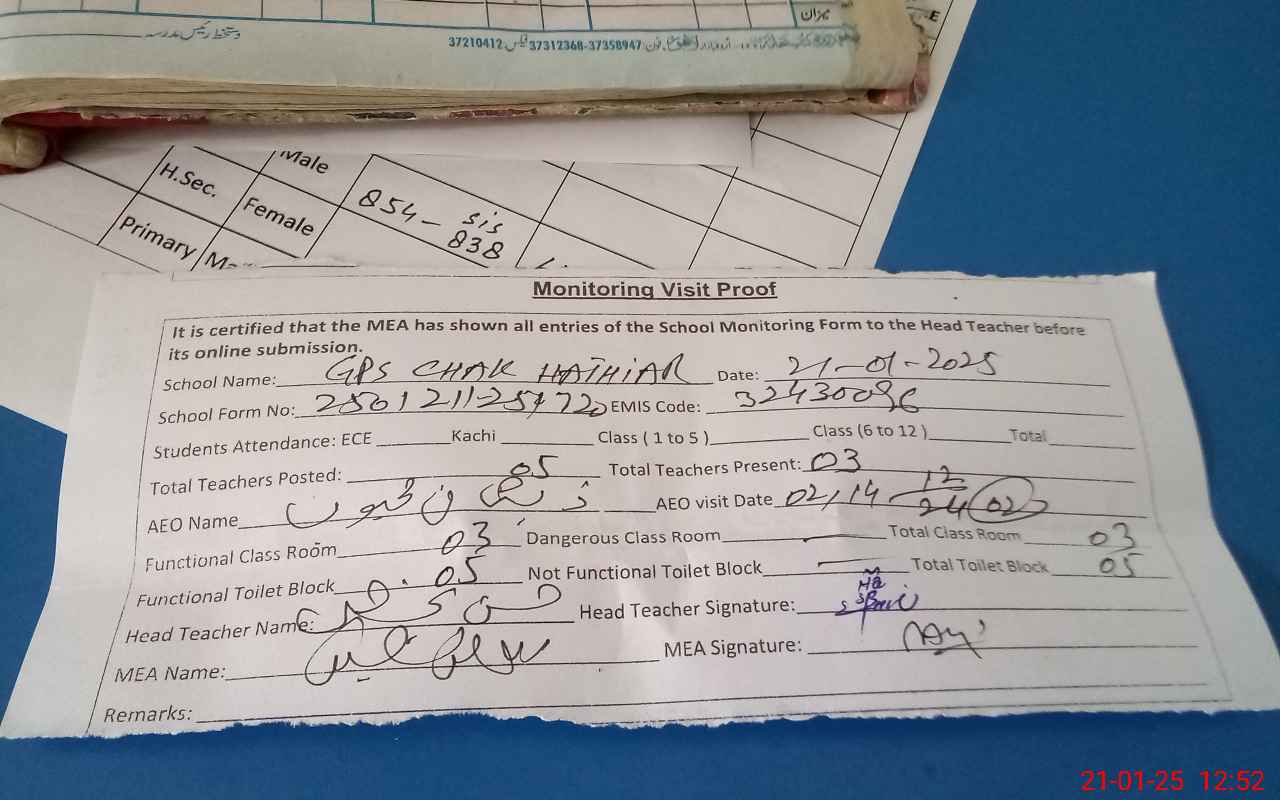 میزان
دستخط رئیس مدرسہ
37210412 فیکس 37312368-37358947 فون
E
Male
H.Sec.
Female
854- sis
838
Primary
Monitoring Visit Proof
It is certified that the MEA has shown all entries of the School Monitoring Form to the Head Teacher before
its online submission.
School Name: GPS CHAK HATHIAR Date: 21-01-2025
School Form No: EMIS Code:
Students Attendance: ECE Kachi Class ( 1 to 5 ) Class (6 to 12 ) Total
Total Teachers Posted: 05 Total Teachers Present: 03
AEO Name AEO visit Date 02, 14 12/24 (02)
Functional Class Room 03 Dangerous Class Room — Total Class Room 03
Functional Toilet Block 05 Not Functional Toilet Block — Total Toilet Block 05
Head Teacher Name: Head Teacher Signature:
MEA Name: MEA Signature:
Remarks:
21-01-25 12:52